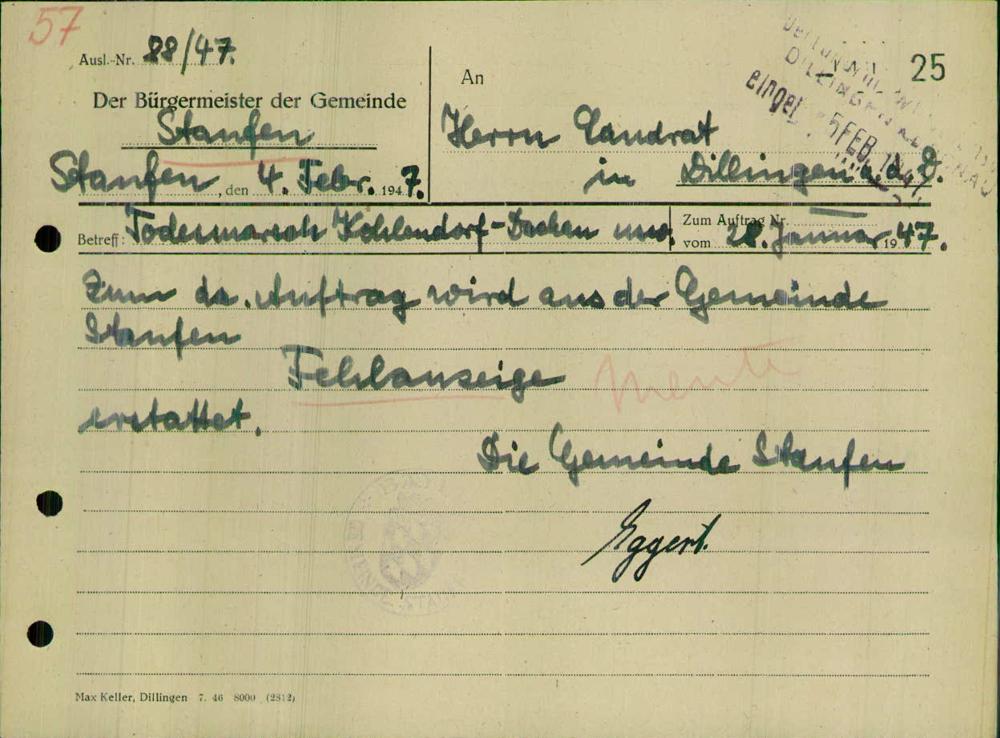 57
Ausl.-Nr. 88/47.
25
Der Bürgermeister der Gemeinde
Staufen
Staufen, den 4. Febr. 1947.
An
Herrn Landrat
in Dillingen a. d. D.
eingel. 5 FEB. 1947
Betreff: Todesmarsch Kohlendorf-Dachau usw.
Zum Auftrag Nr.
vom 28. Januar 1947.
Zum da. Auftrag wird aus der Gemeinde
Staufen
Fehlanzeige
erstattet.
Die Gemeinde Staufen
Eggert.
Max Keller, Dillingen 7. 46 8000 (2812)